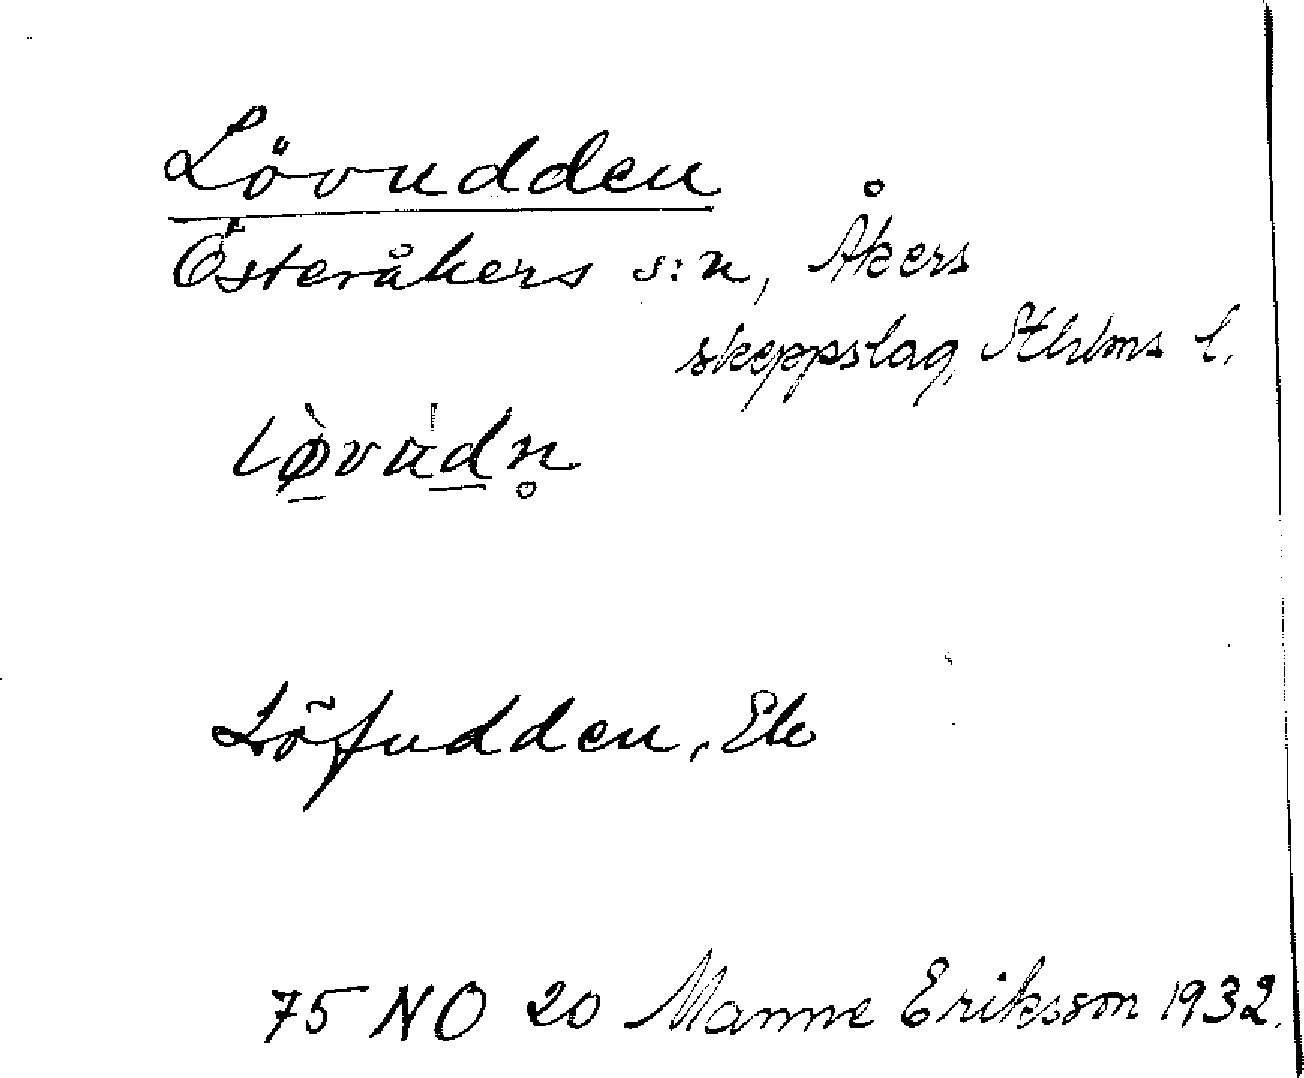 Lövudden
Österåkers s:n, Åkers
skeppslag, Sthlms l.
Löfudden, Ek
75 NO 20 Manne Eriksson 1932.